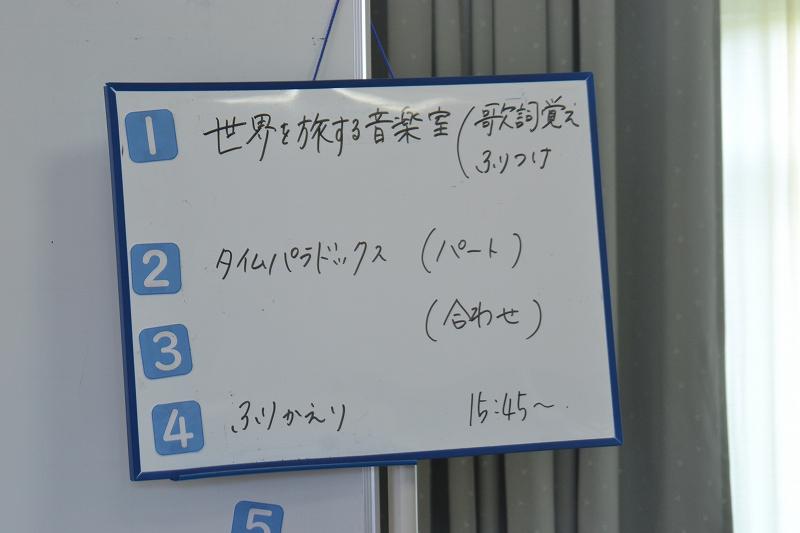 1 世界を旅する音楽室(歌詞覚え
ふりつけ
2 タイムパラドックス (パート)
3 (合わせ)
4 ふりかえり 15:45〜
5